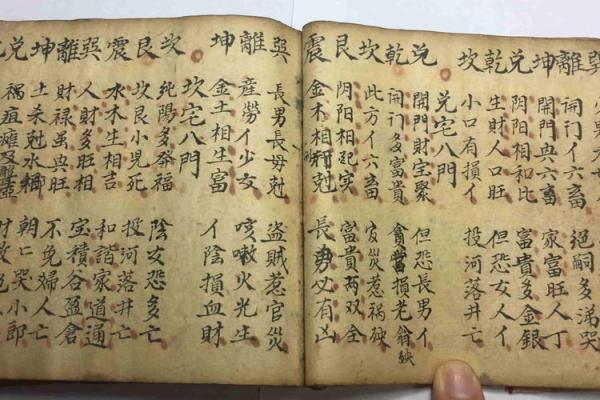 巽
離 開门亻六畜 絕嗣多涕哭
坤 開門與六畜 家富旺人丁
兌 阴阳相和比 富貴多金銀
乾 生財人口旺 但恐女人亻
坎 小口有損亻 投河落井亡
兌宅八門
兌 開門財宝聚 但恐長男亻
乾 開门多富貴 損老翁殃
坎 此方亻六畜 災惹祸殃
艮 阴阳相配实 富貴两双全
震 金木相刑尅 長男又有凶
巽 長男長母尅 盜贼惹官災
離 產勞亻少女 咳嗽火光生
坤 金土相生富 亻陰損血財
坎宅八門
坎 純陽多泰福 陰女恐多亡
艮 坎艮小児死 投河落井亡
震 水木生相吉 和諧家道通
巽 人財多旺相 宝積谷盈倉
離 財禄虽與旺 不免婦人亡
坤 土杀尅水 朝亡哭小郎
兌 祸疽癱